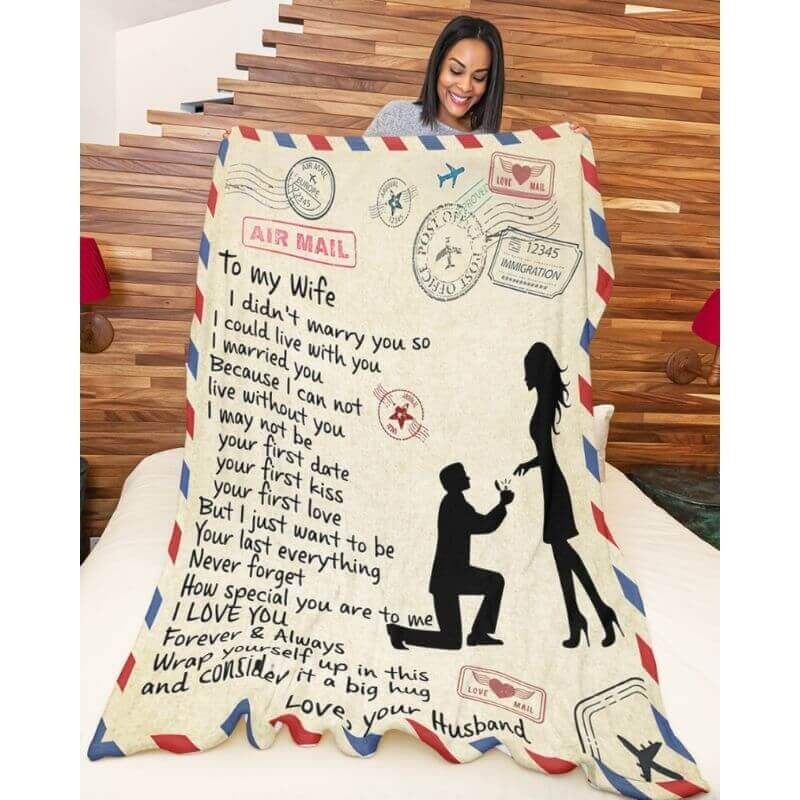 AIR MAIL
EUROPE
12345
LOVE MAIL
POST OFFICE
POST OFFICE
12345
IMMIGRATION
AIR MAIL
To my Wife
I didn't marry you so
I could live with you
I married you
Because I can not
live without you
I may not be
your first date
your first kiss
your first love
But I just want to be
Your last everything
Never forget
How special you are to me
I LOVE YOU
Forever & Always
Wrap yourself up in this
and consider it a big hug
Love, your Husband
LOVE MAIL